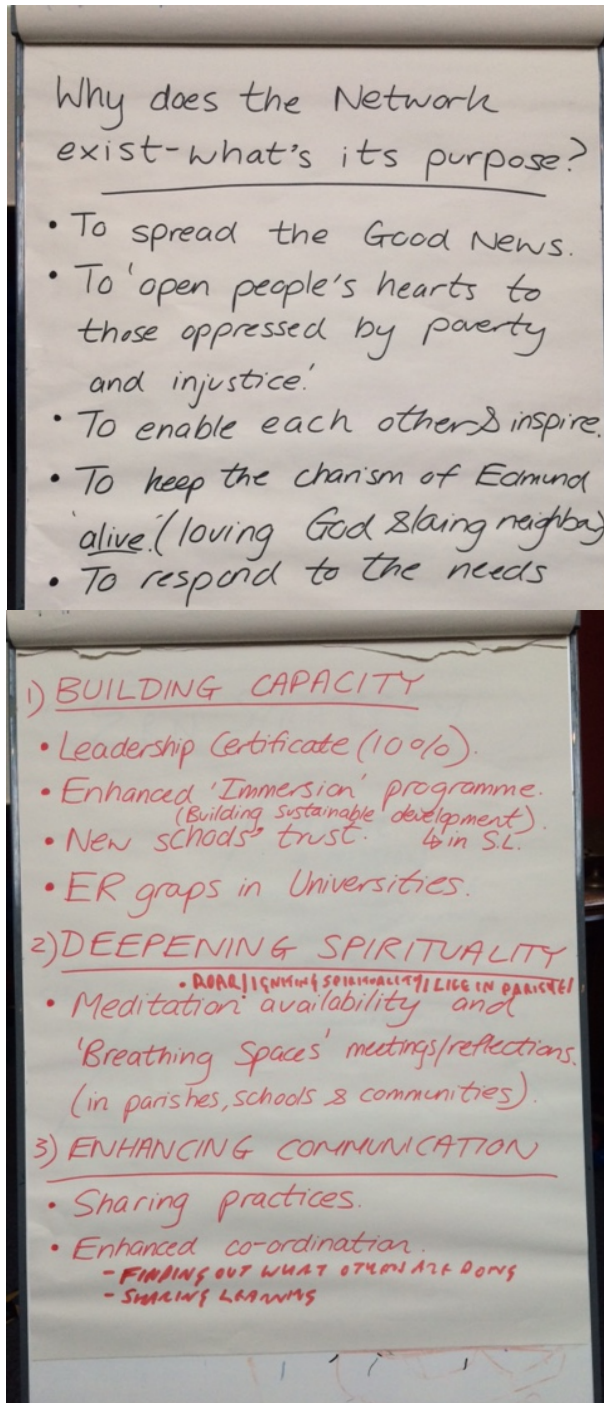 Why does the Network
exist-what's its purpose?
• To spread the Good News.
• To 'open people's hearts to
those oppressed by poverty
and injustice.'
• To enable each other & inspire.
• To keep the charism of Edmund
'alive'. (loving God & loving neighbour)
• To respond to the needs
1) BUILDING CAPACITY
• Leadership Certificate (10%).
• Enhanced 'Immersion' programme.
(Building sustainable development).
• New schools' trust. ↳ in S.L.
• ER groups in Universities.
2) DEEPENING SPIRITUALITY
• ROAR/IGNITING SPIRITUALITY/LIFE IN PARISHES/
• Meditation availability and
'Breathing Spaces' meetings/reflections.
(in parishes, schools & communities).
3) ENHANCING COMMUNICATION
• Sharing practices.
• Enhanced co-ordination.
- FINDING OUT WHAT OTHERS ARE DOING
- SHARING LEARNING